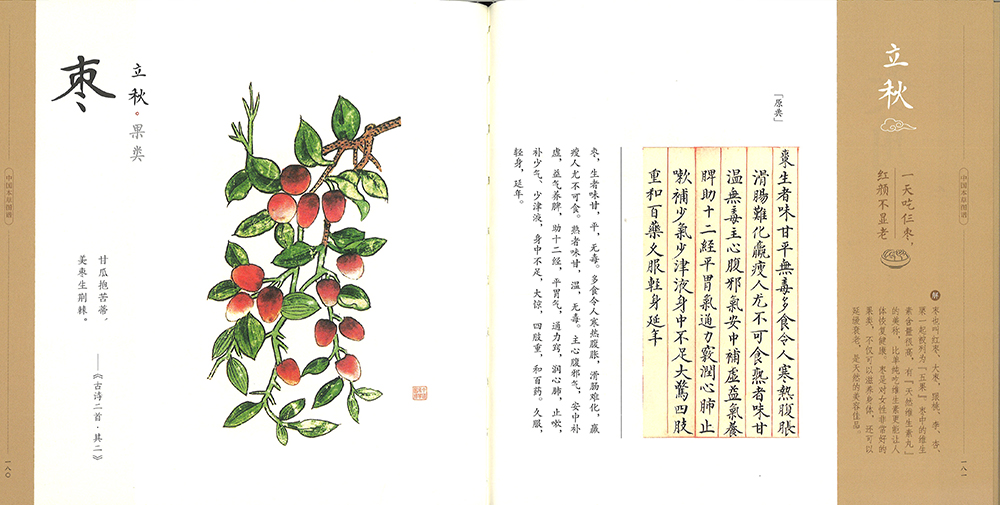 立秋
一天吃仨枣，
红颜不显老
中国本草图谱
一八一
解
枣也叫红枣、大枣，跟桃、李、杏、
栗一起被列为“五果”。枣中的维生
素含量很高，有“天然维生素丸”
的美称，比单纯吃维生素更能让人
体恢复健康。枣是对女性非常好的
果类，不仅可以滋养身体，还可以
延缓衰老，是天然的美容佳品。
「原典」
棗生者味甘平無毒多食令人寒熱腹脹
滑腸難化羸瘦人尤不可食熟者味甘
温無毒主心腹邪氣安中補虛益氣養
脾助十二經平胃氣通九竅潤心肺止
嗽補少氣少津液身中不足大驚四肢
重和百藥久服輕身延年
枣，生者味甘，平，无毒。多食令人寒热腹胀，滑肠难化，羸
瘦人尤不可食。熟者味甘，温，无毒。主心腹邪气，安中补
虚，益气养脾，助十二经，平胃气，通九窍，润心肺，止嗽，
补少气、少津液，身中不足，大惊，四肢重，和百药。久服，
轻身，延年。
立秋。果类
枣
甘瓜抱苦蒂，
美枣生荆棘。
——《古诗二首·其二》
中国本草图谱
一八〇